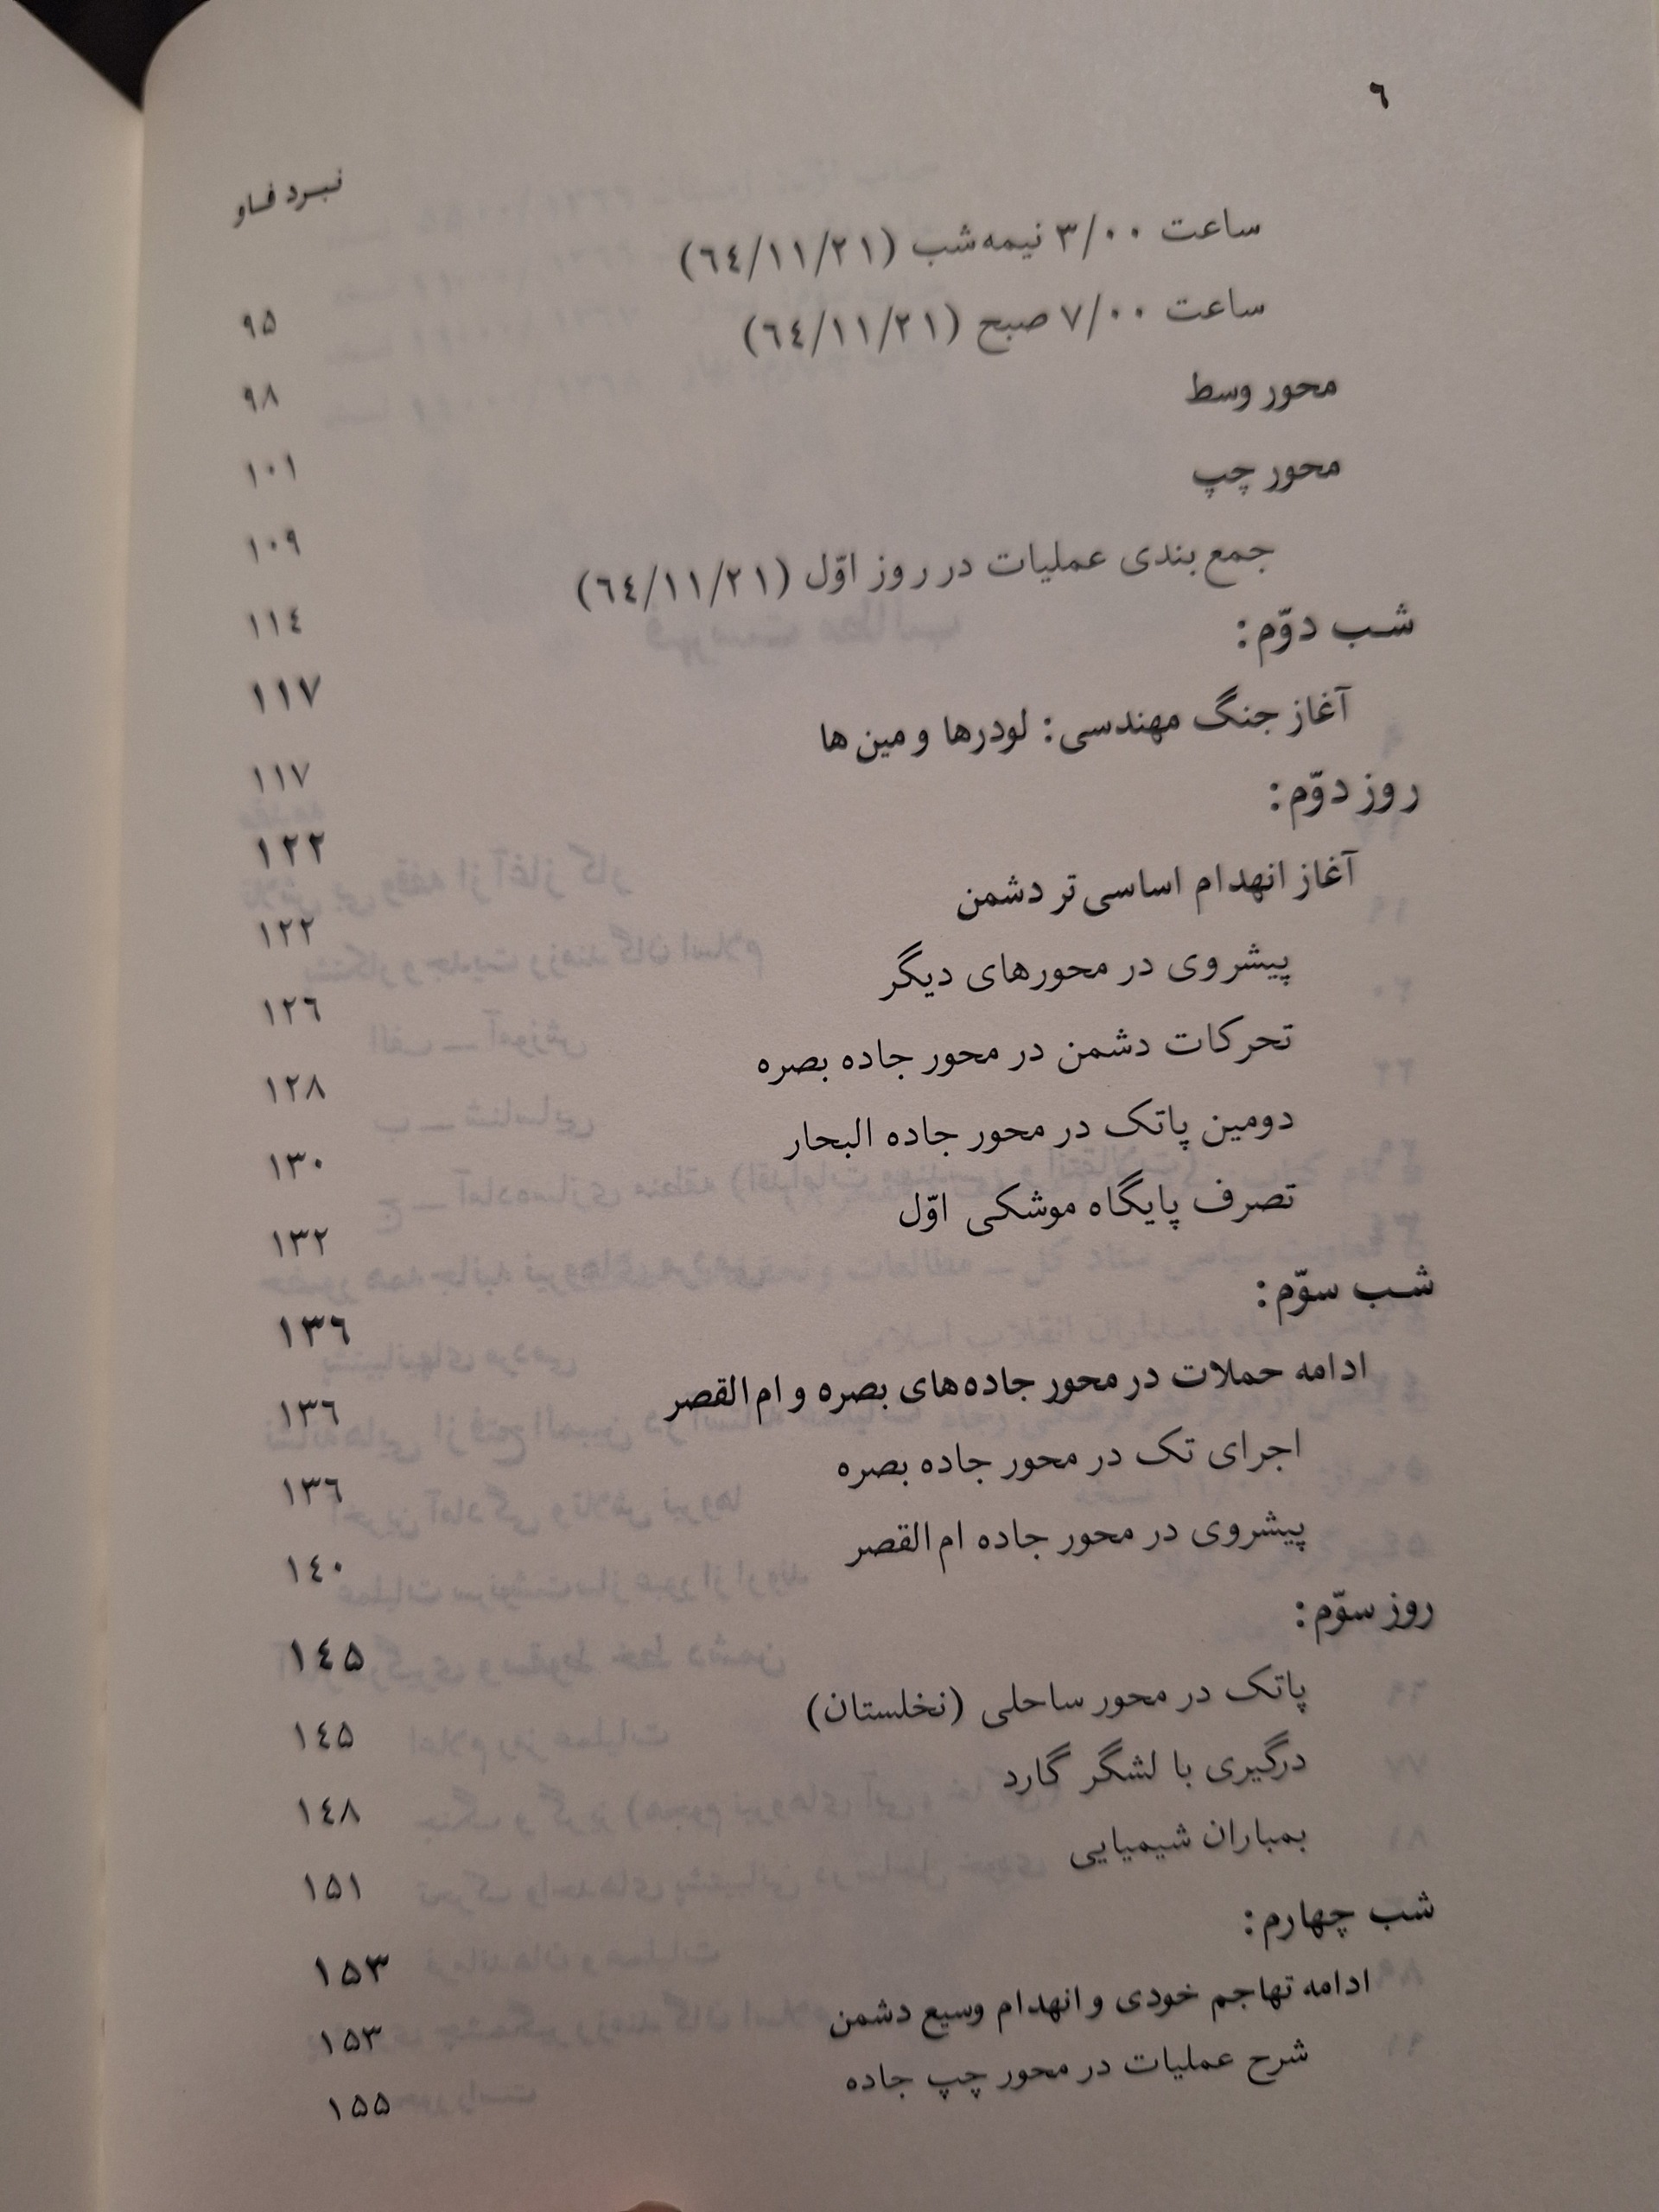 ۶
نبرد فاو
ساعت ۳/۰۰ نیمه‌شب (۶۴/۱۱/۲۱) ۹۵
ساعت ۷/۰۰ صبح (۶۴/۱۱/۲۱) ۹۸
محور وسط ۱۰۱
محور چپ ۱۰۹
جمع بندی عملیات در روز اوّل (۶۴/۱۱/۲۱) ۱۱۴
شب دوّم: ۱۱۷
آغاز جنگ مهندسی: لودرها و مین ها ۱۱۷
روز دوّم: ۱۲۲
آغاز انهدام اساسی تر دشمن ۱۲۲
پیشروی در محورهای دیگر ۱۲۶
تحرکات دشمن در محور جاده بصره ۱۲۸
دومین پاتک در محور جاده البحار ۱۳۰
تصرف پایگاه موشکی اوّل ۱۳۲
شب سوّم: ۱۳۶
ادامه حملات در محور جاده‌های بصره و ام‌القصر ۱۳۶
اجرای تک در محور جاده بصره ۱۳۶
پیشروی در محور جاده ام‌القصر ۱۴۰
روز سوّم: ۱۴۵
پاتک در محور ساحلی (نخلستان) ۱۴۵
درگیری با لشگر گارد ۱۴۸
بمباران شیمیایی ۱۵۱
شب چهارم: ۱۵۳
ادامه تهاجم خودی و انهدام وسیع دشمن ۱۵۳
شرح عملیات در محور چپ جاده ۱۵۵